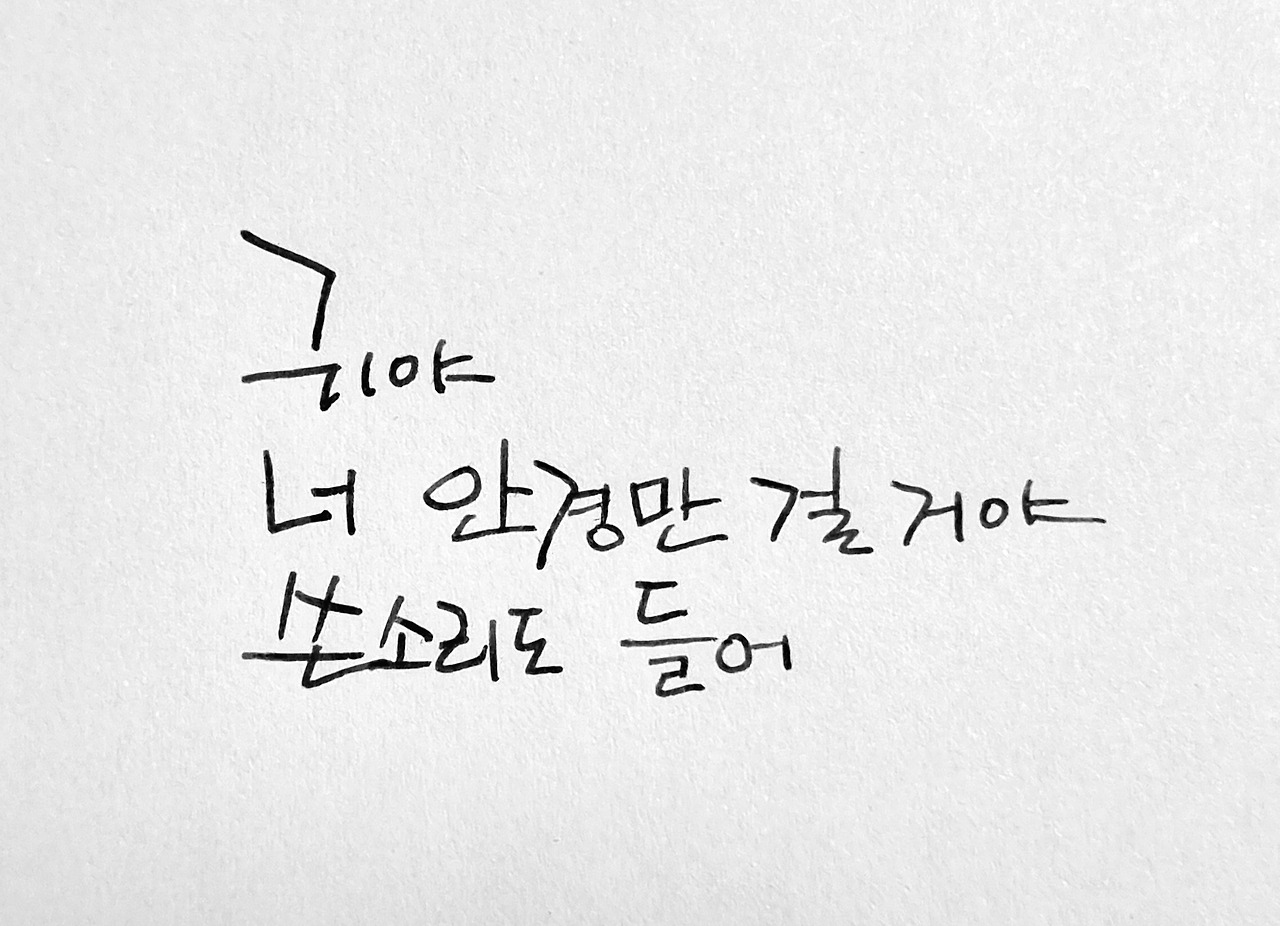 귀야
너 안경만 걸 거야
쓴소리도 들어